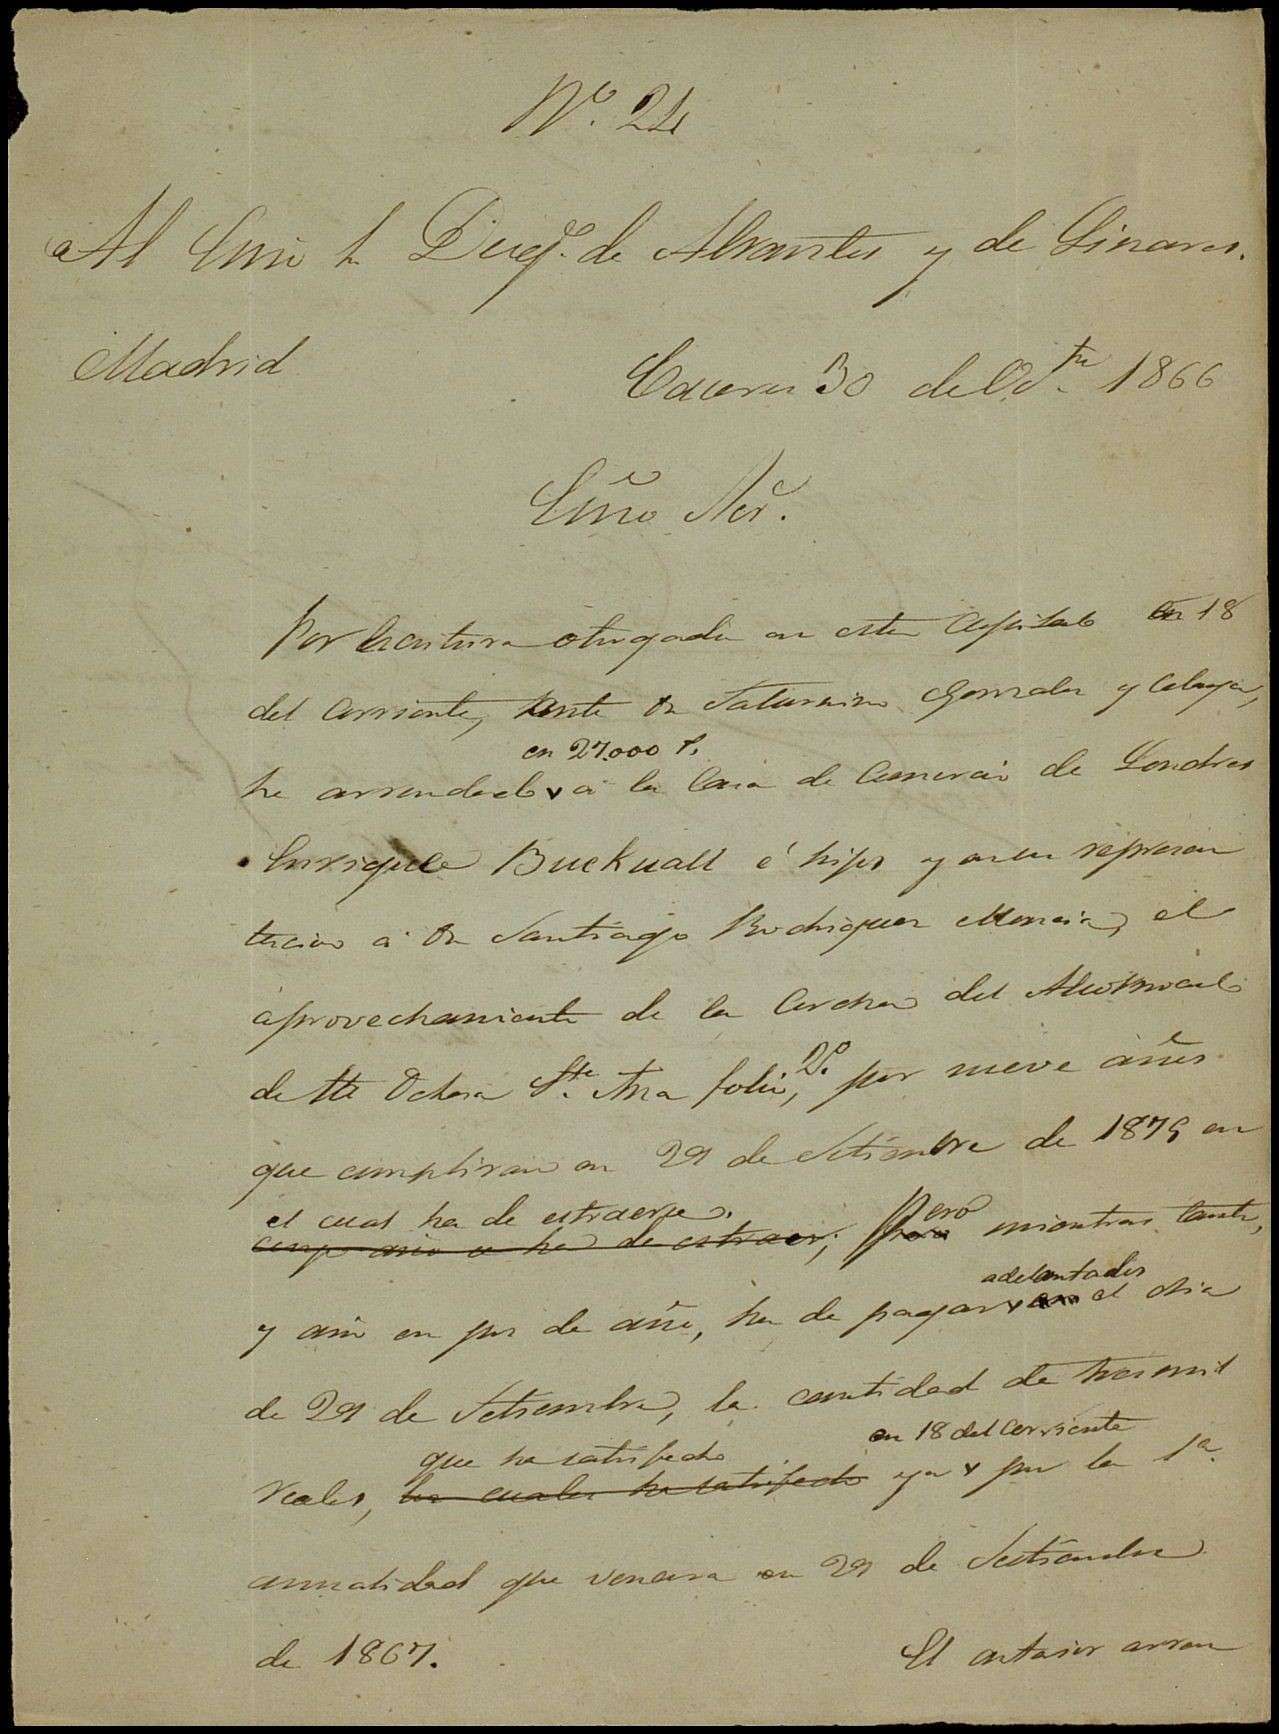 Nº. 24
Al Emô Sr Duq.e de Abrantes y de Linares.
Madrid
Caceres 30 de Oct.re 1866
Emõ Sor.
Por Escritura otorgada en esta Capital en 18
del corriente, ante Dn Saturnino Gonzalez y Celaya,
en 27.000 r.
he arrendado a la Casa de Comercio de Londres
Enrique Bucknall é hijos y en su represen
tacion a Dn Santiago Rodriguez Mencia, el
aprovechamiento de la Corcha del Alcornocal
de la Dehesa Sta. Ana folio 2º, por nueve años
que cumpliran en 29 de Setiembre de 1875 en
el cual ha de estraerse.
cuyo año se ha de estraer; Pero mientras tanto,
adelantados
y año en pos de año, ha de pagar el dia
de 29 de Setiembre, la cantidad de tres mil
que ha satisfecho en 18 del corriente
reales, los cuales ha satisfecho ya por la 1ª
anualidad que vencera en 29 de Setiembre
de 1867. El anterior arren